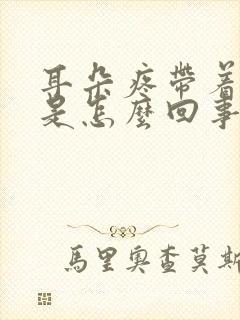 耳朵疼帶着
是怎麼回事
馬里奧查莫斯